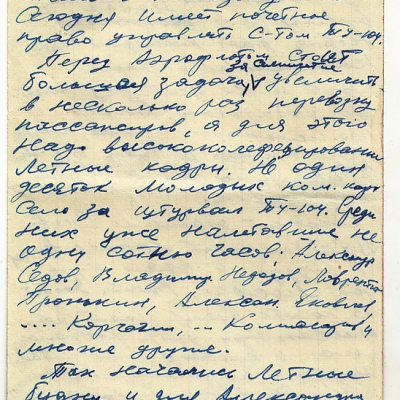 Сегодня имеет почетное
право управлять С-том ТУ-104.
Перед Аэрофлотом стоит
большая задача, увеличить
в несколько раз перевозку
пассажиров, а для этого
надо высококолефецированные
летные кадры. Не один
десяток молодых ком. кор
село за штурвал ТУ-104. Среди
них уже налетавшие не
одну сотню часов, Александр
Седов, Владимир Недозов, Лаврентий
Пронькин, Алексан. Яковлев,
.... Корчагин, .. Комиссаров и
многие другие.
Так начались летные
будни и для Александра